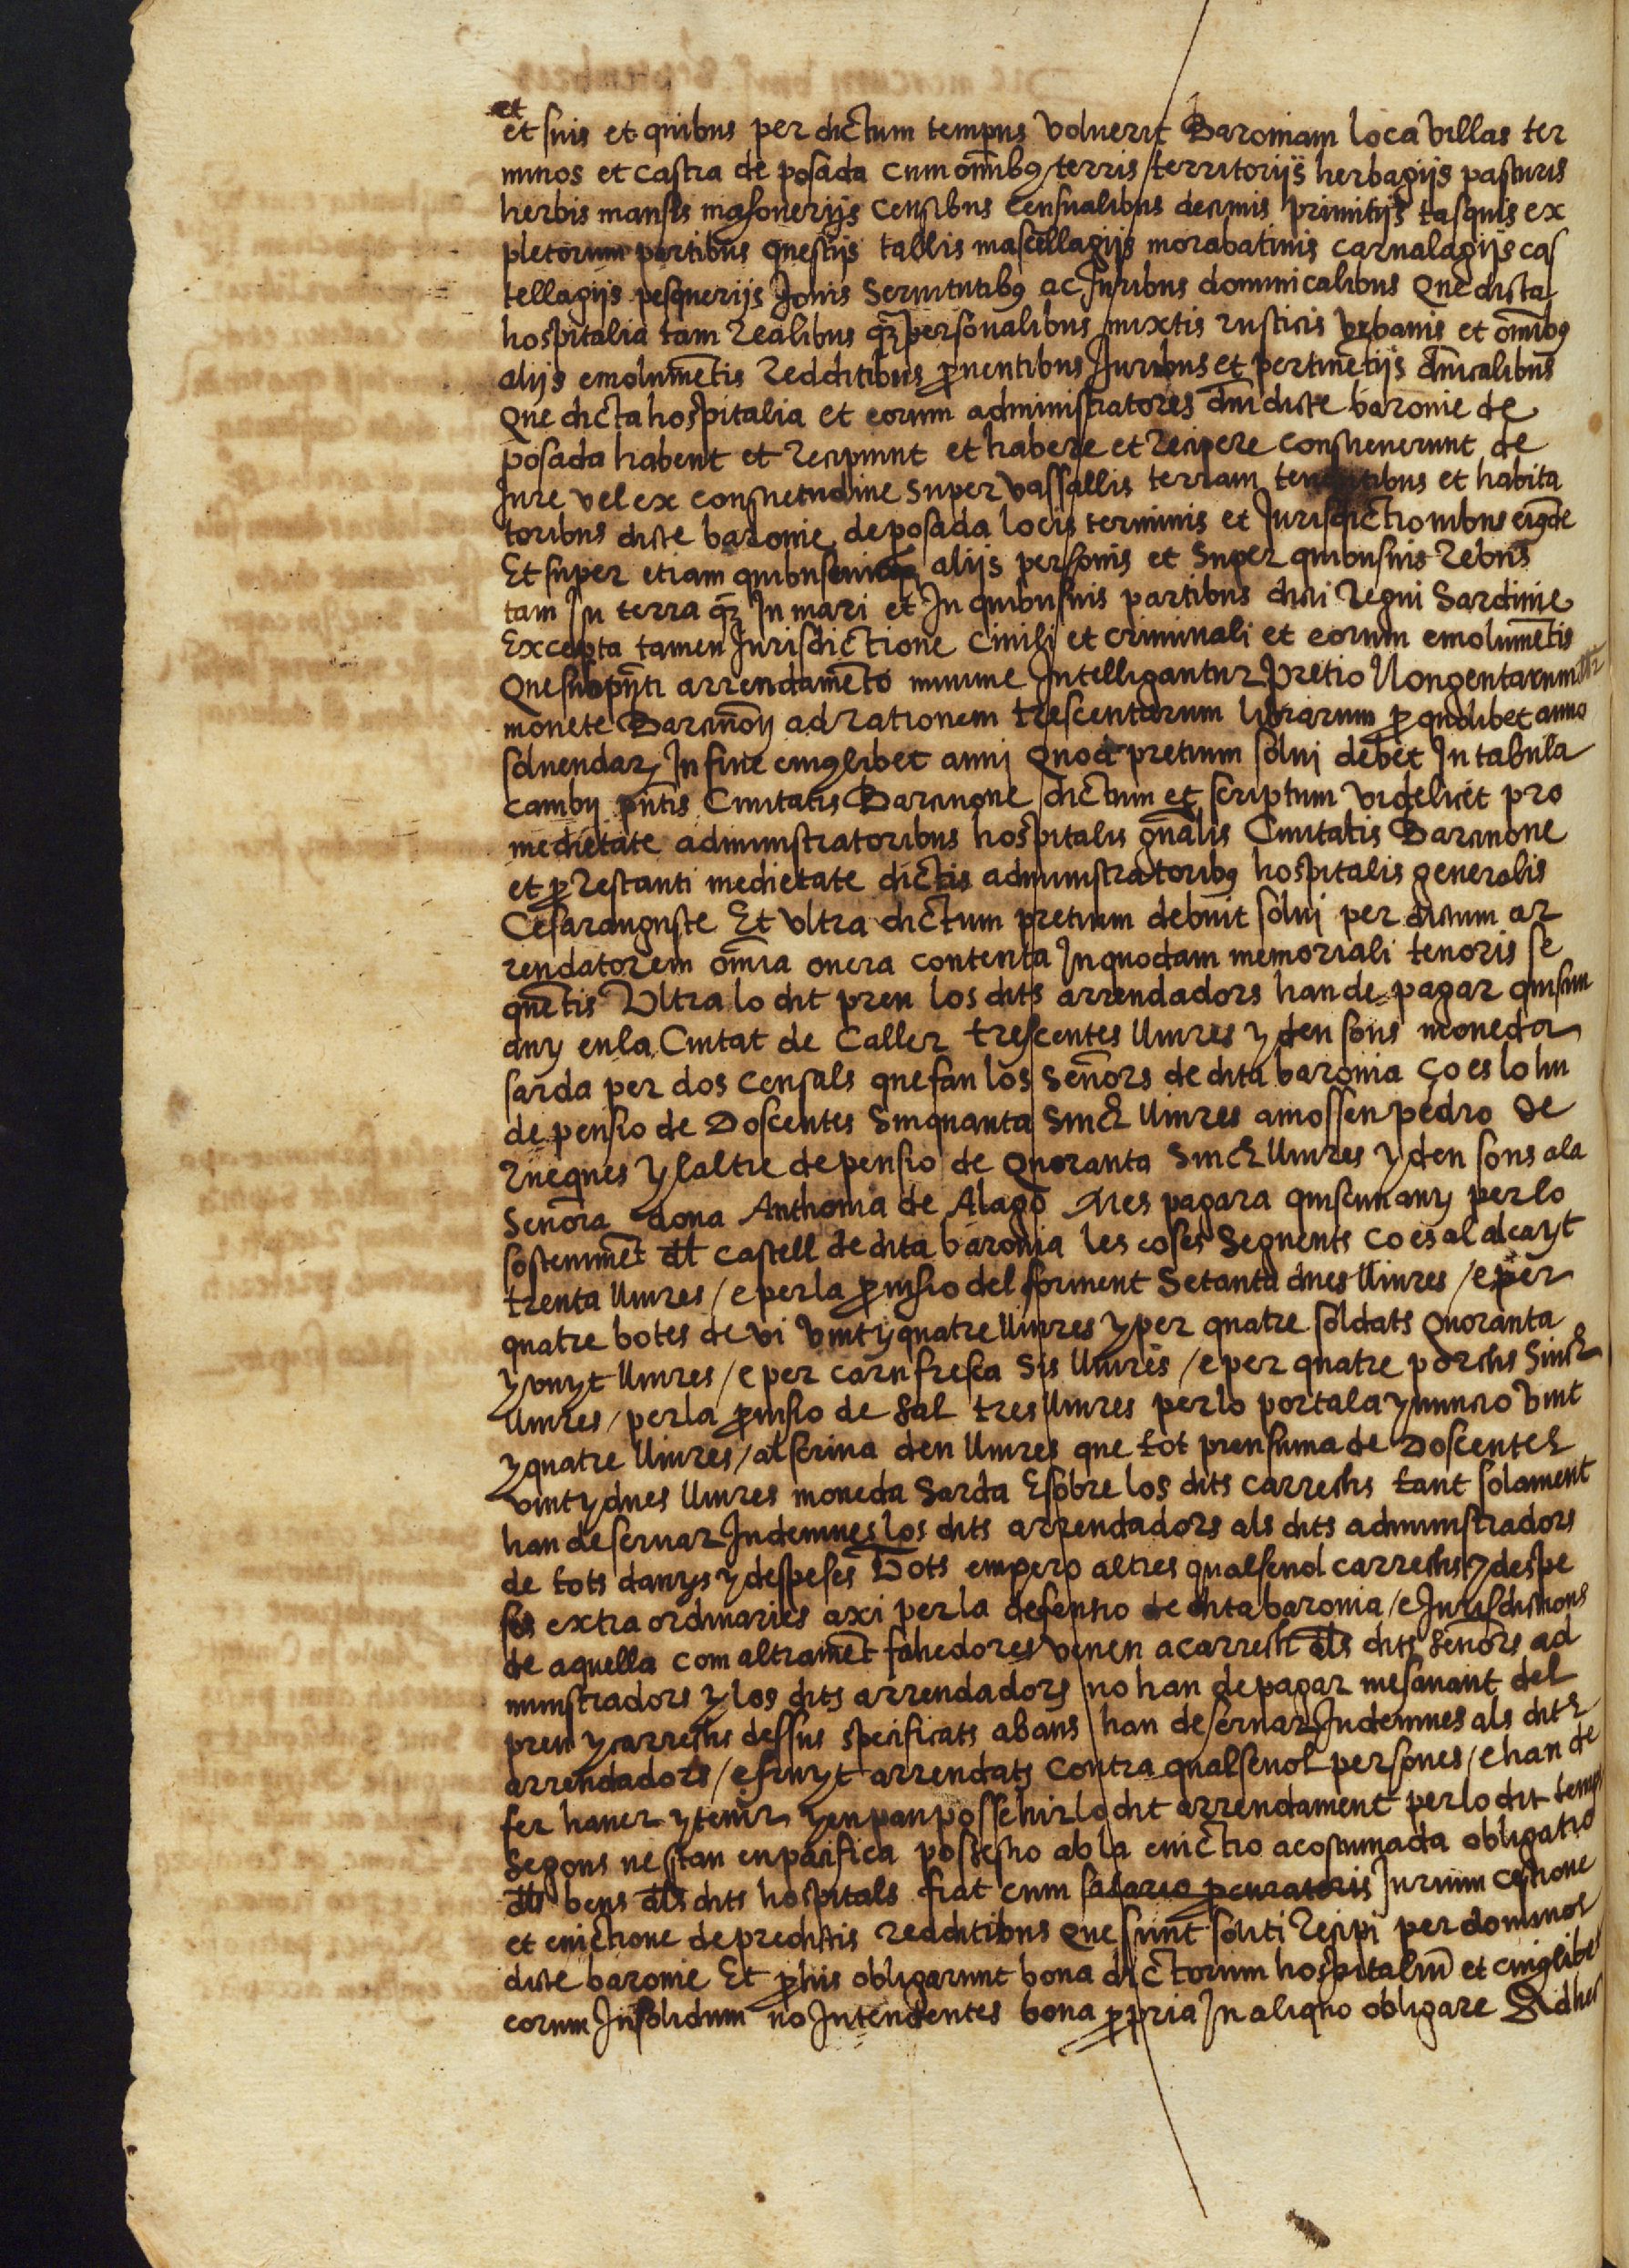 et
et suis et quibus per dictum tempus voluerit Baroniam loca villas ter
minos et castra de posada cum omībꝯ terris / territorijs herbagijs pasturis
herbis mansis masonerijs censibus censualibus decimis primitijs tasquis ex
pletorum partibus questijs tallis mascellagijs morabatinis carnalagijs cas
tellagijs pesquerijs Jonis Seruitutibꝯ ac Juribus dominicalibus Que dicta
hospitalia tam Realibus qꝫ personalibus mixtis rusticis vrbanis et omībꝯ
alijs emolumētis Redditibus ꝓuentibus Juribus et pertinētijs dn̄icalibus
Que dicta hospitalia et eorum administratores dn̄i dicte baronie de
posada habent et recipiunt et habere et recipere consueuerunt de
Jure vel ex consuetudine super vassallis terram tenentibus et habita
toribus dicte baronie de posada locis terminis et Jurisdictionibus eiꝯde
Et super etiam quibus alijs personis et super quibusuis rebus
tam In terra qꝫ In mari et In quibusuis partibus dicti Regni Sardinie
Excepta tamen Jurisdictione Ciuili et criminali et eorum emolumētis
Que sub pn̄ti arrendamēto minime Intelligantur Pretio Nongentarum llr̄
monete Barcinoñ ad rationem trescentarum librarum ꝓ quolibet anno
soluendarꝫ In fine cuiꝯlibet anni Quod pretium solui debet In tabula
cambij pn̄tis Ciuitatis Barcinone dictum et scriptum videlicet pro
medietate administratoribus hospitalis gn̄alis Ciuitatis Barcinone
et ꝓ Restanti medietate dictis administratoribꝯ hospitalis generalis
Cesarauguste Et vltra dictum pretium debuit solui per dictum ar
rendatorem om̄ia onera contenta In quodam memoriali tenoris se
quētis Vltra lo dit preu los dits arrendadors han de pagar quiscun
any en la Ciutat de Caller trescentes lliures y deu sous moneda
sarda per dos censals que fan los Señors de dita baronia ço es lo hu
de pensio de Doscentes Sinquanta Sinch lliures a mossen pedro de
Ruecques y laltre de pensio de Quoranta Sinch lliures y deu sous ala
Señora dona Anthonia de Alago Mes pagara quiscun any per lo
sosteniment del castell de dita baronia les coses Seguents ço es al alcayt
trenta lliures / e per la ꝓuisio del forment Setanta dues lliures / e per
quatre botes de vi vint y quatre lliures y per quatre soldats Quoranta
y vuyt lliures / e per carn fresca Sis lliures / e per quatre porchs Sinch
lliures / per la ꝓuisio de Sal tres lliures per lo portala y nuncio vint
y quatre lliures / al scriua deu lliures que tot pren suma de Doscentes
vint y dues lliures moneda Sarda E sobre los dits carrechs tant solament
han de seruar Indemnes los dits arrendadors als dits administradors
de tots danys y despeses Tots empero altres qualseuol carrechs y despe
ses extraordinaries axi per la defensio de dita baronia / e Jurisdictions
de aquella com altrament fahedores venen a carrech dels dits Señors ad
ministradors y los dits arrendadors no han de pagar mes auant del
preu y carrechs dessus specificats abans han de seruar Indemnes als dits
arrendadors / e fruyt arrendats contra qualseuol persones / e han de
fer hauer y tenir y en pau possehir lo dit arrendament per lo dit temps
Segons ne stan en pacifica possessio ab la euictio acostumada obligatio
dels bens dels dits hospitals fiat cum salario ꝓcuratoris Jurium cessione
et euictione de predictis redditibus Que sunt soliti recipi per dominos
dicte baronie Et ꝓ hiis obligarunt bona dictorum hospitaliū et cuiꝯlibet
eorum Insolidum no Intendentes bona ꝓpria In aliquo obligare Ad hec